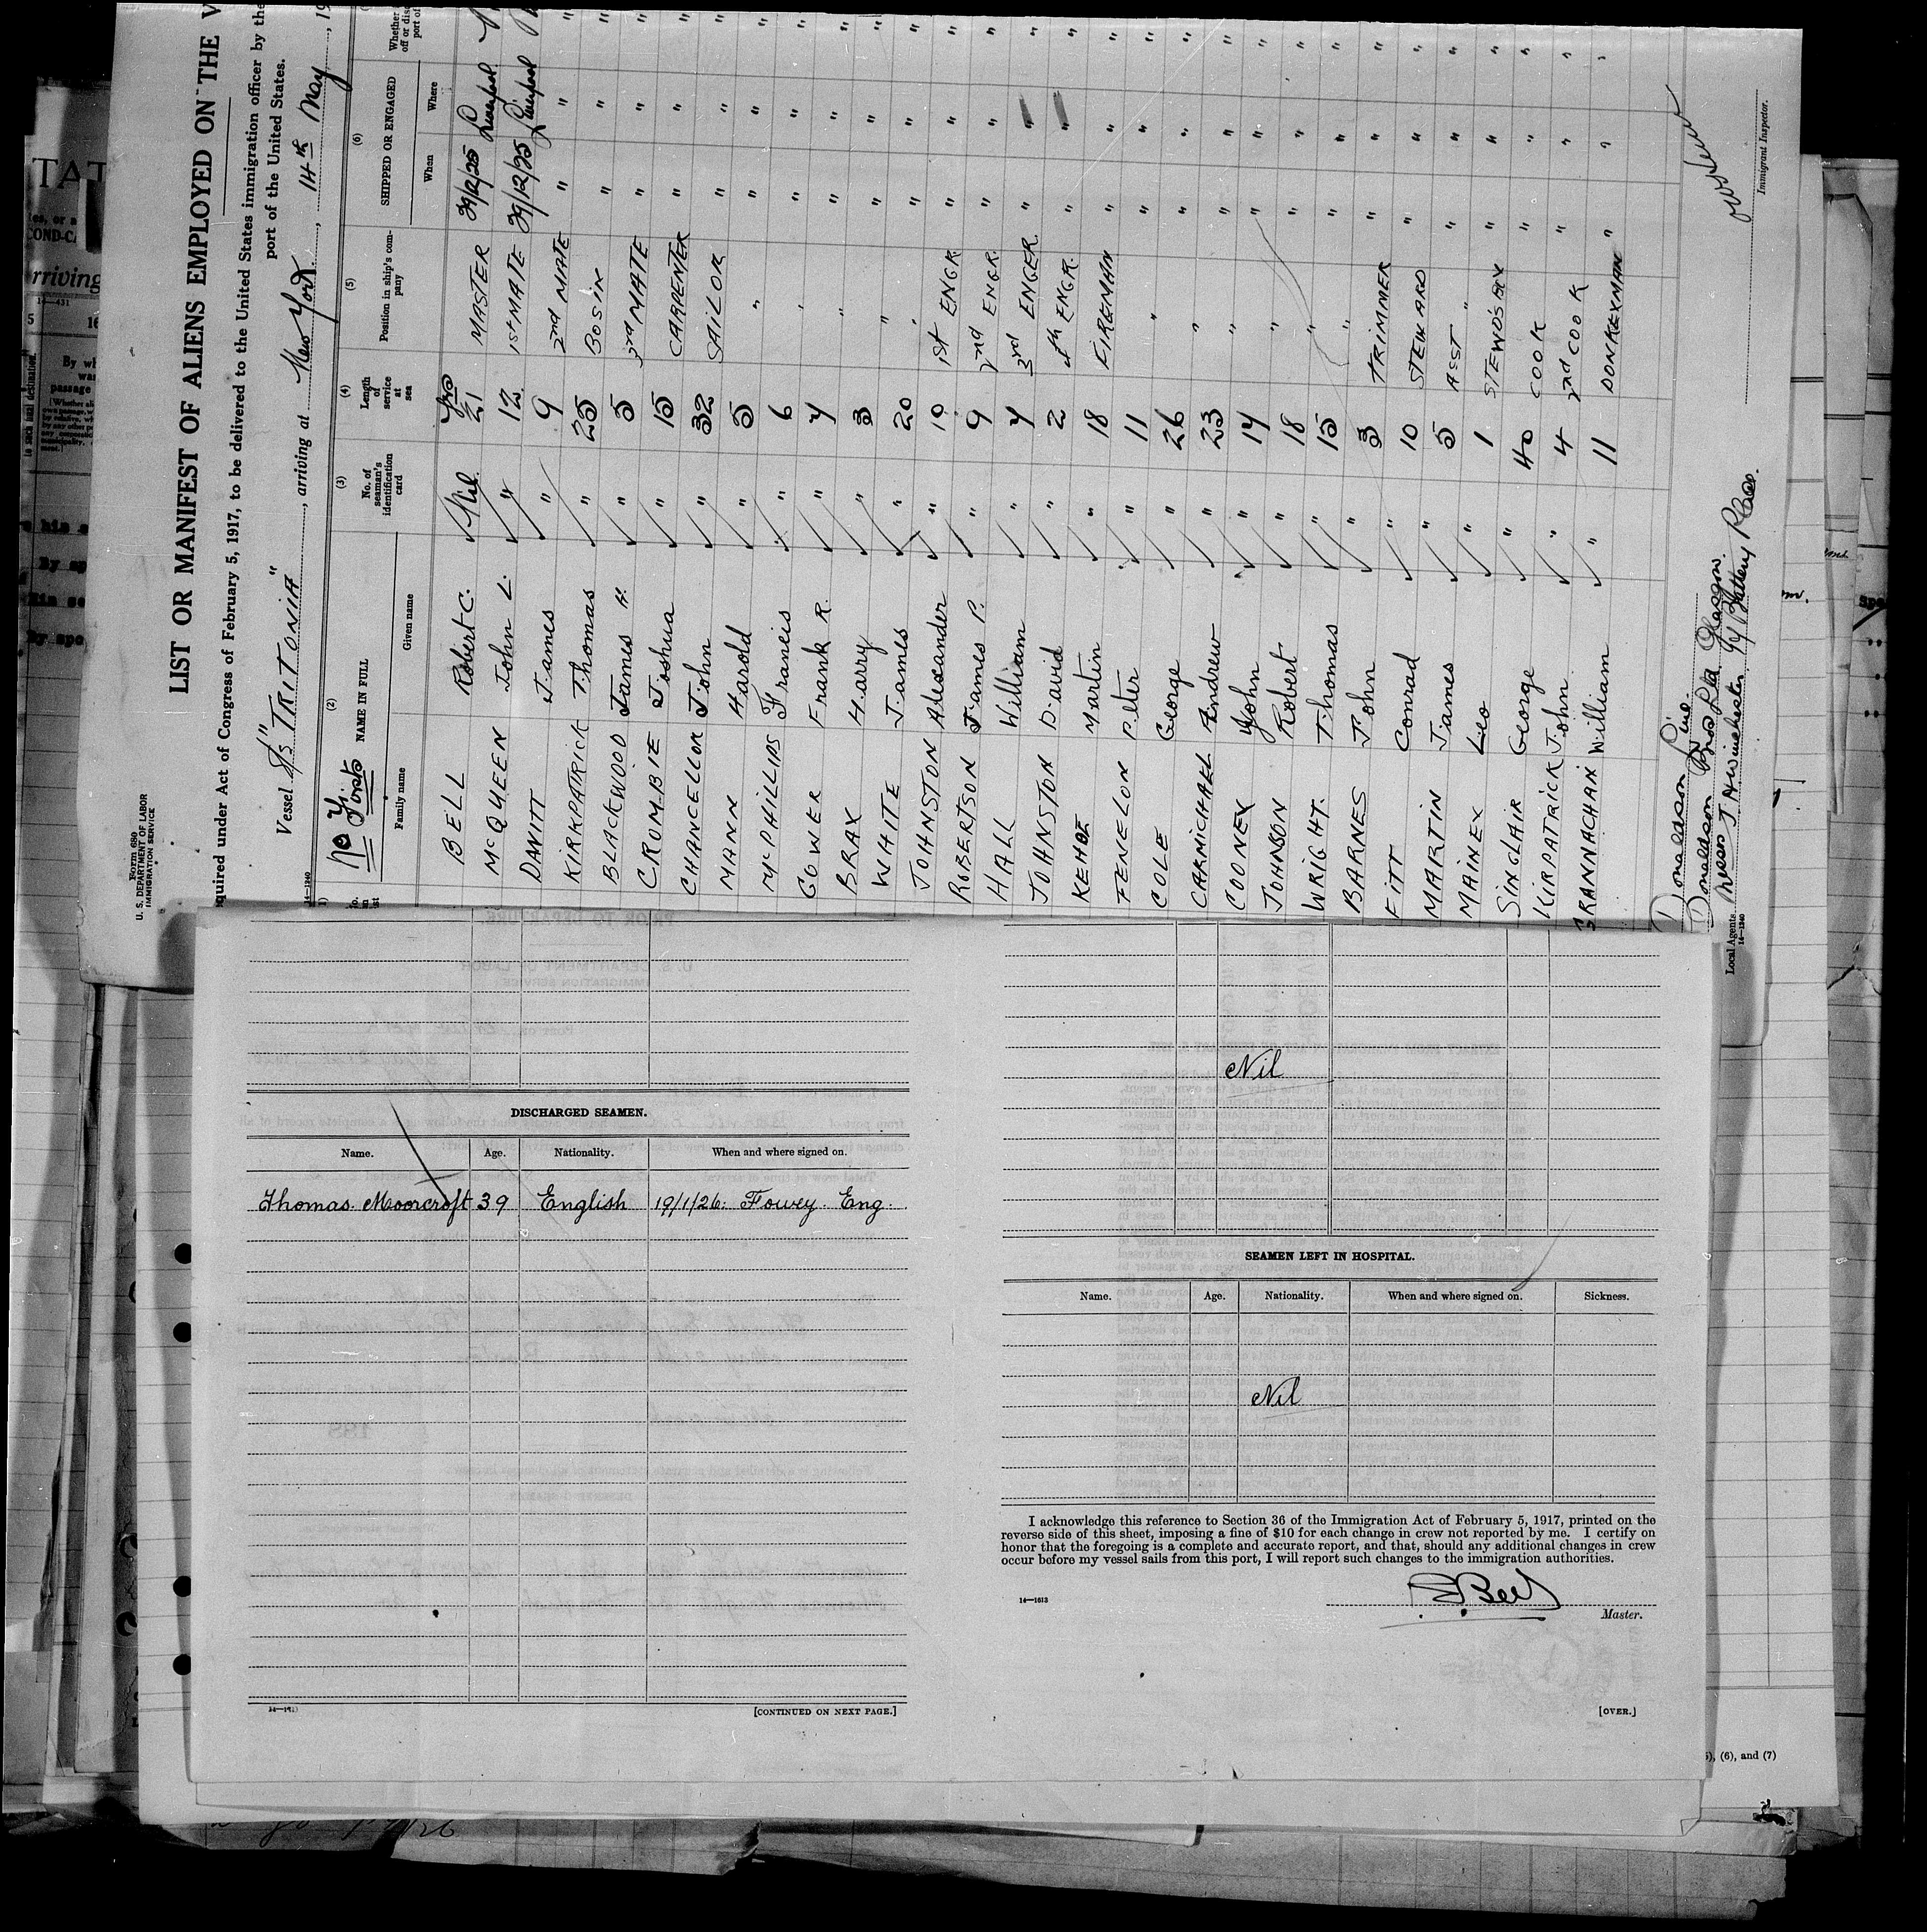 Form 680
U. S. DEPARTMENT OF LABOR
IMMIGRATION SERVICE
LIST OR MANIFEST OF ALIENS EMPLOYED ON THE V
equired under Act of Congress of February 5, 1917, to be delivered to the United States immigration officer by the
port of the United States.
Vessel S/s "TRITONIA", arriving at New York, 14th May, 19
14—1240
(2) (3) (4) (5) (6)
NAME IN FULL
Family name Given name
No. of seaman's identification card
Length of service at sea
Position in ship's company
SHIPPED OR ENGAGED
When Where
No Firsts
yrs
BELL Robert C. Nil. 21 MASTER 29/12/25 Liverpool
McQUEEN John L. " 12 1st MATE 29/12/25 Liverpool
DAVITT James " 9 2nd MATE " "
KIRKPATRICK Thomas " 25 BOSIN " "
BLACKWOOD James H. " 5 3rd MATE " "
CROMBIE Joshua " 15 CARPENTER " "
CHANCELLOR John " 32 SAILOR " "
MANN Harold " 5 " " "
McPHILLIPS Francis " 6 " " "
GOWER Frank R. " 7 " " "
BRAX Harry " 3 " " "
WHITE James " 20 " " "
JOHNSTON Alexander " 10 1st ENGR " "
ROBERTSON James P. " 9 2nd ENGR. " "
HALL William " 7 3rd ENGER. " "
JOHNSTON David " 2 4th ENGR. " "
KEHOE Martin " 18 FIREMAN " "
FENELON Peter " 11 " " "
COLE George " 26 " " "
CARMICHAEL Andrew " 23 " " "
COONEY John " 14 " " "
JOHNSON Robert " 18 " " "
WRIGHT. Thomas " 15 " " "
BARNES John " 3 TRIMMER " "
FITT Conrad " 10 STEWARD " "
MARTIN James " 5 ASST " " "
MAINEY Leo " 1 STEWDS BOY " "
SINCLAIR George " 40 COOK " "
KIRPATRICK John " 4 2nd COOK " "
GRANNACHAN William " 11 DONKEYMAN " "
Donaldson Line
Donaldson Bros Ltd Glasgow.
Local Agents
14—1240
Immigrant Inspector.
DISCHARGED SEAMEN.
Name. Age. Nationality. When and where signed on.
Thomas Moorcroft 39 English 19/1/26: Fowey. Eng.
[CONTINUED ON NEXT PAGE.]
Nil
SEAMEN LEFT IN HOSPITAL.
Name. Age. Nationality. When and where signed on. Sickness.
Nil
I acknowledge this reference to Section 36 of the Immigration Act of February 5, 1917, printed on the
reverse side of this sheet, imposing a fine of $10 for each change in crew not reported by me. I certify on
honor that the foregoing is a complete and accurate report, and that, should any additional changes in crew
occur before my vessel sails from this port, I will report such changes to the immigration authorities.
14—1613
Master.
[OVER.]
(6), and (7)